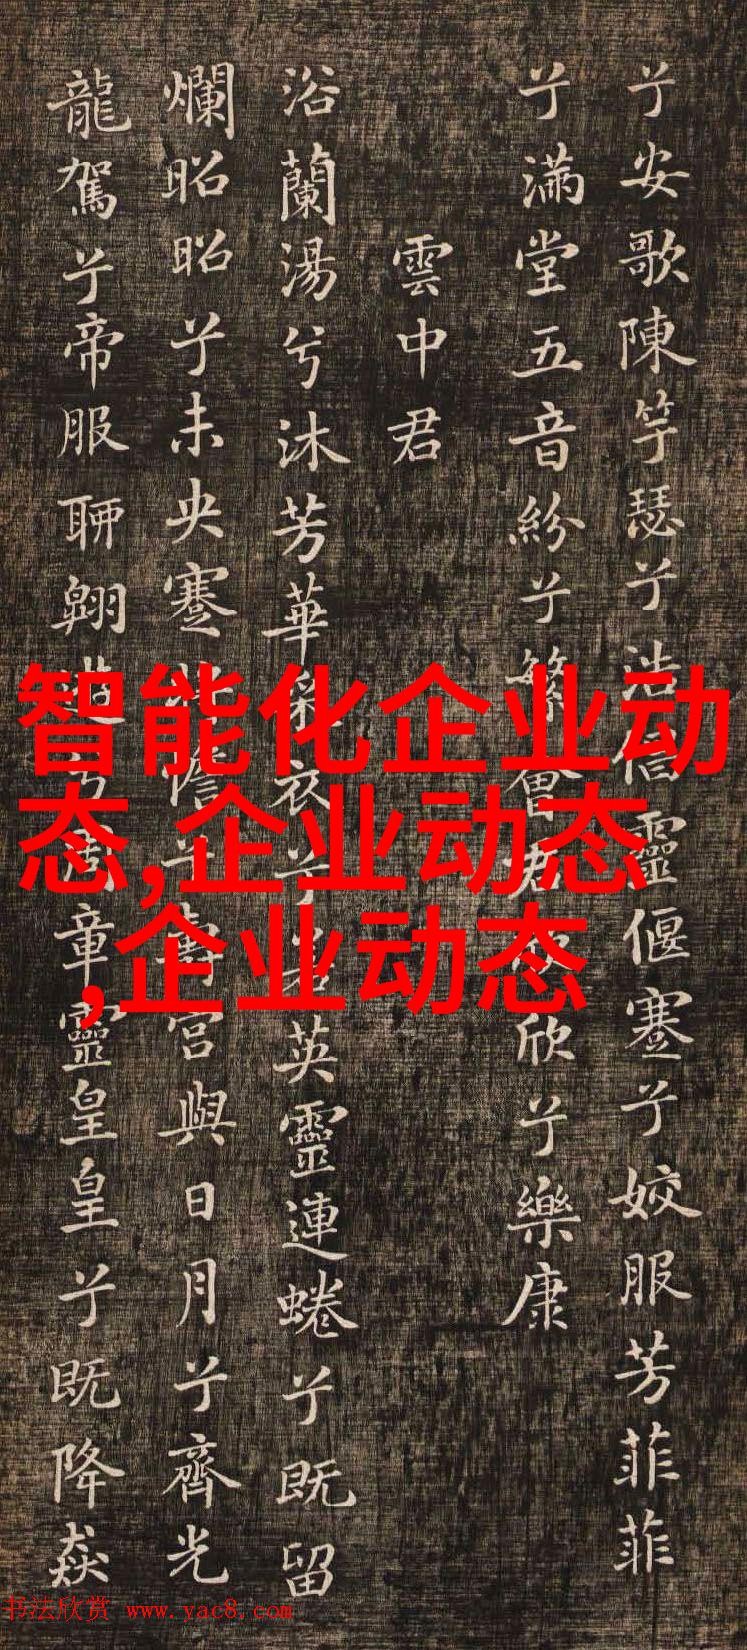 兮安歌陳竽瑟兮浩倡靈偃蹇兮姣服芳菲菲
兮滿堂五音紛兮繁會君欣欣兮樂康
雲中君
浴蘭湯兮沐芳華采衣兮若英靈連蜷兮既留
爛昭昭兮未央蹇將憺兮壽宮與日月兮齊光
龍駕兮帝服聊翱遊兮周章靈皇皇兮既降猋
智能化企业动
态,企业动态
,企业动态
书法欣赏 www.yac8.com